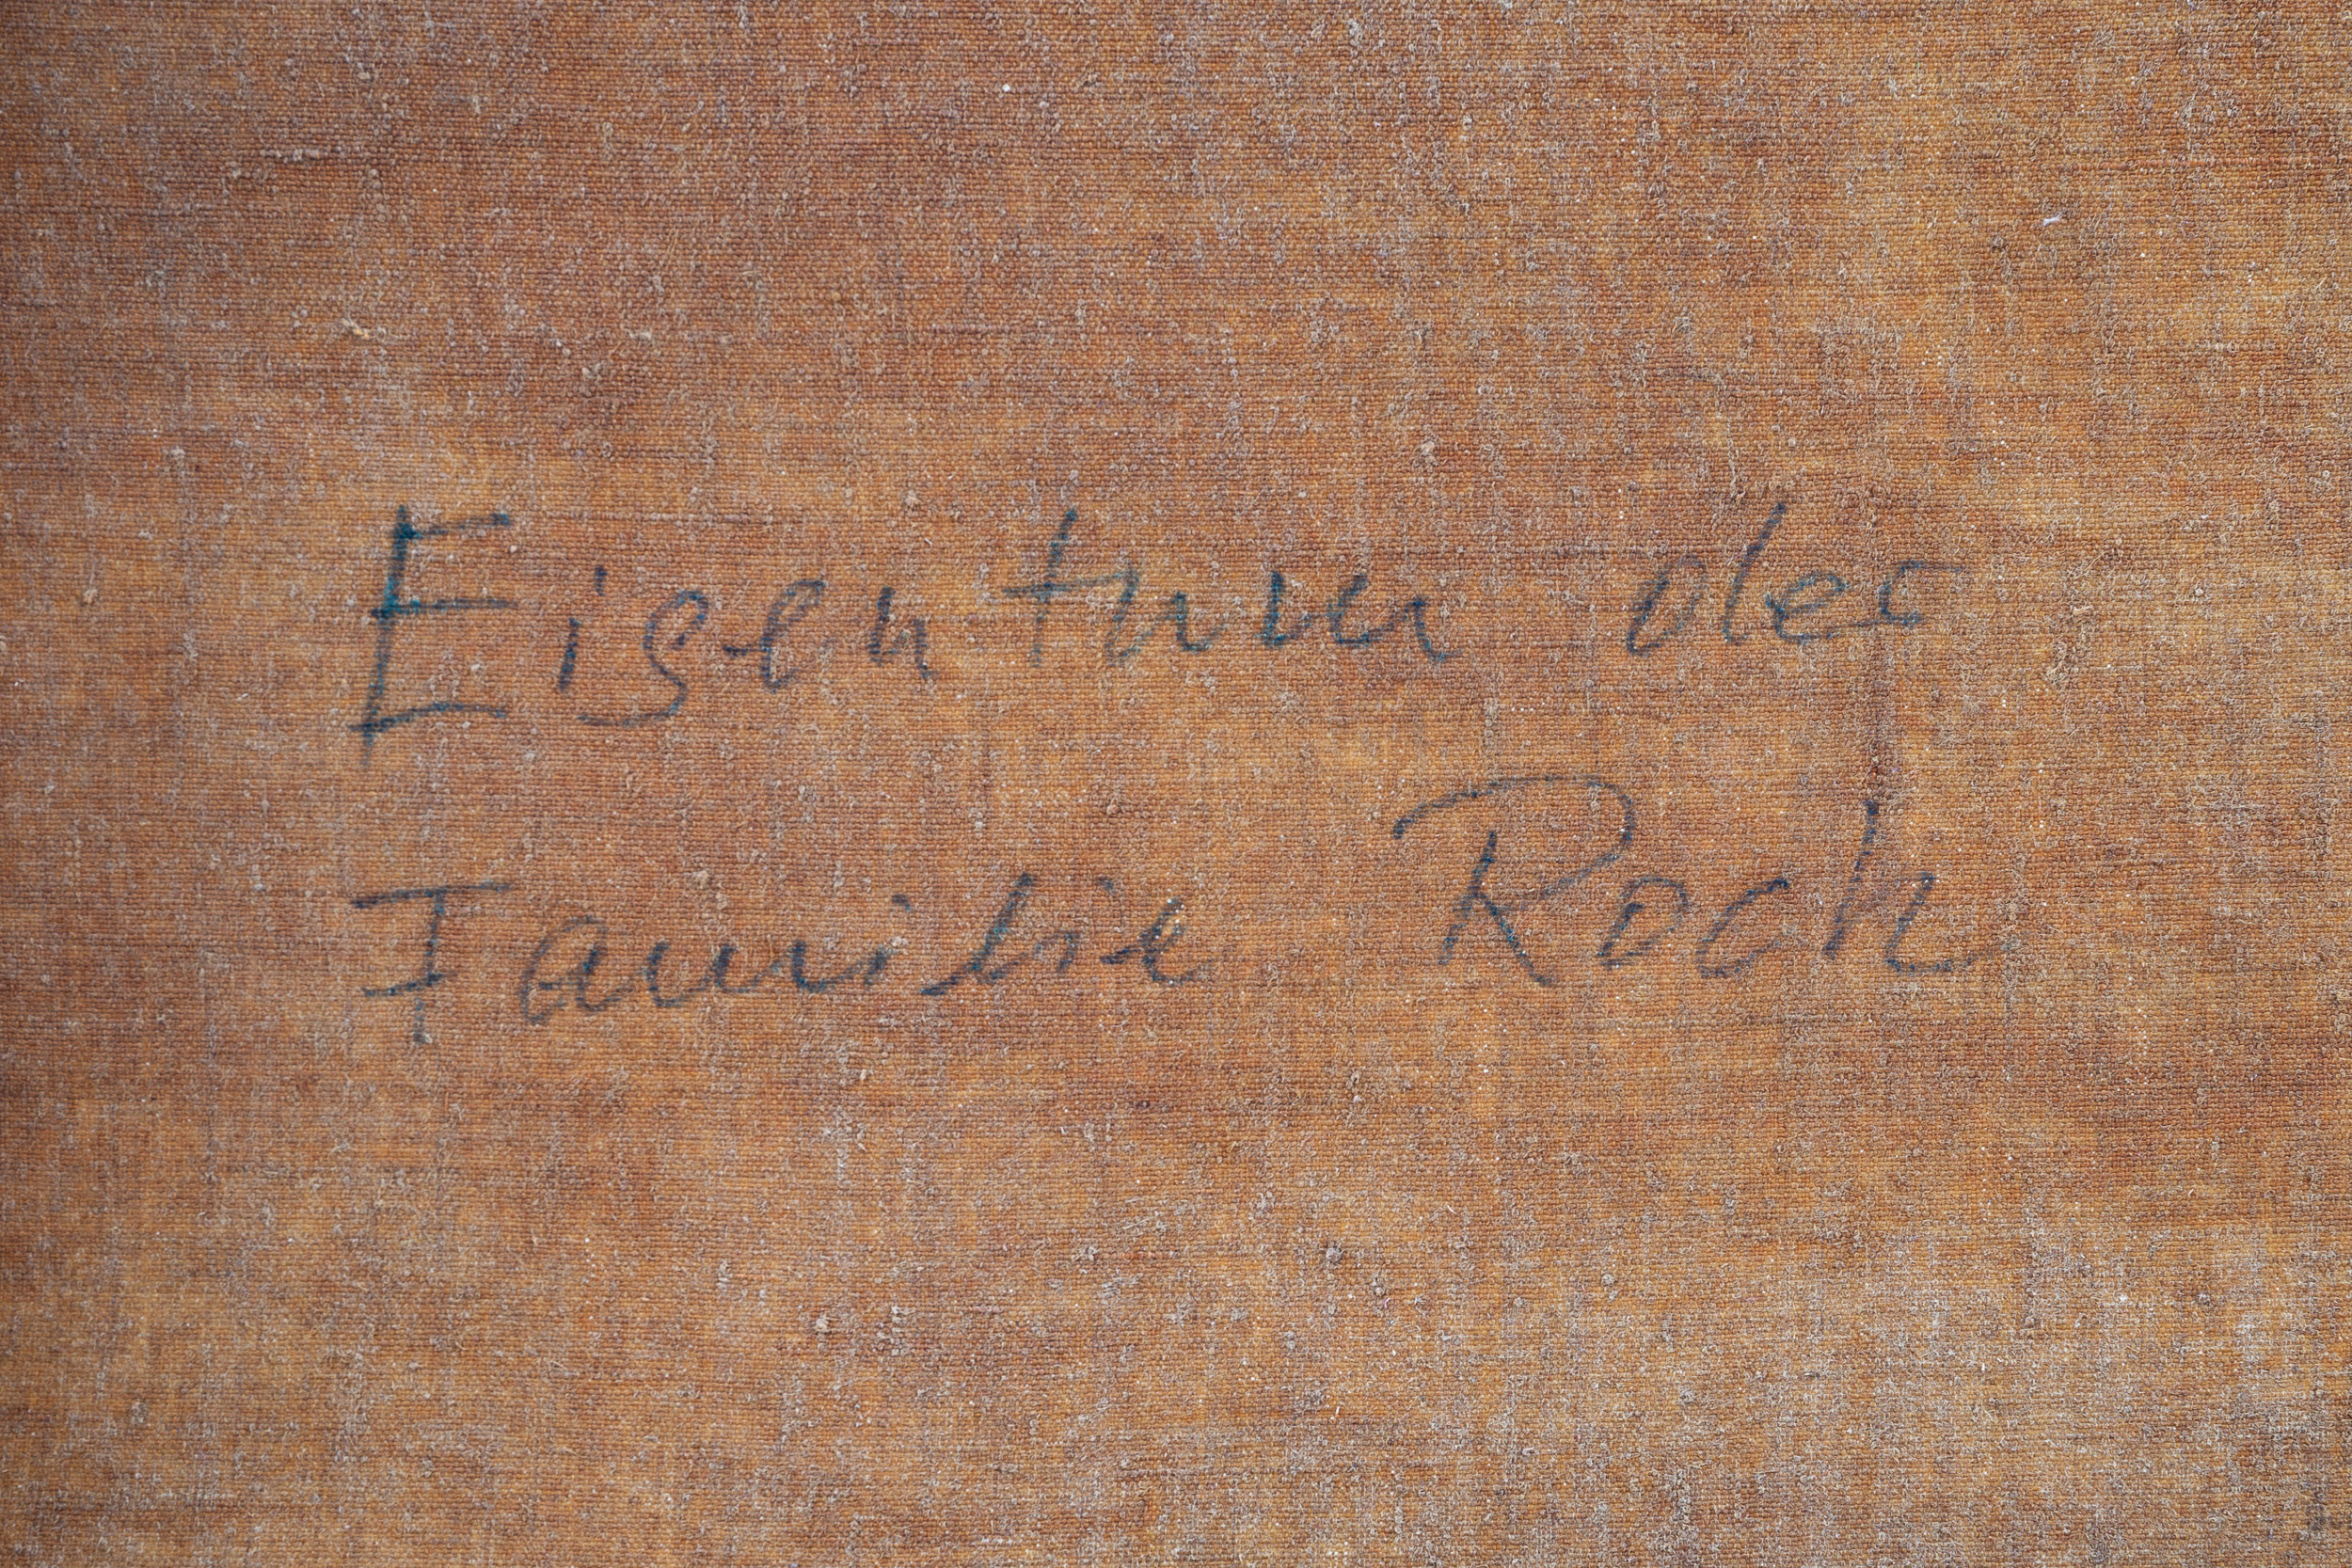 Eigentum der
Familie Roch